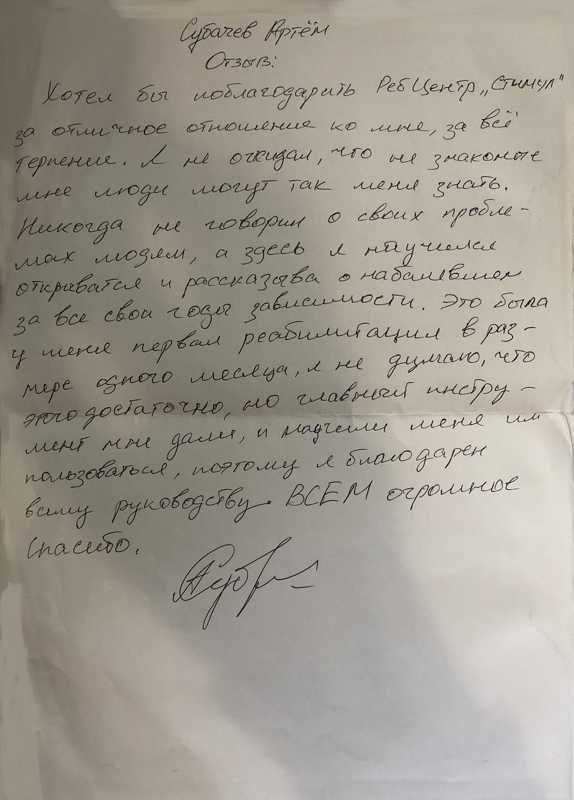 Субачев Артём
Отзыв:
Хотел бы поблагодарить Реб Центр „Стимул"
за отличное отношение ко мне, за всё
терпение. Я не ожидал, что не знакомые
мне люди могут так меня знать.
Никогда не говорил о своих пробле-
мах людям, а здесь я научился
откриватся и рассказыва о наболевшем
за все свои годы зависимости. Это была
у меня первая реабилитация в раз-
мере одного месяца, я не думаю, что
этого достаточно, но главный инстру-
мент мне дали, и научили меня им
пользоваться, поэтому я благодарен
всему руководству. ВСЕМ огромное
спасибо.